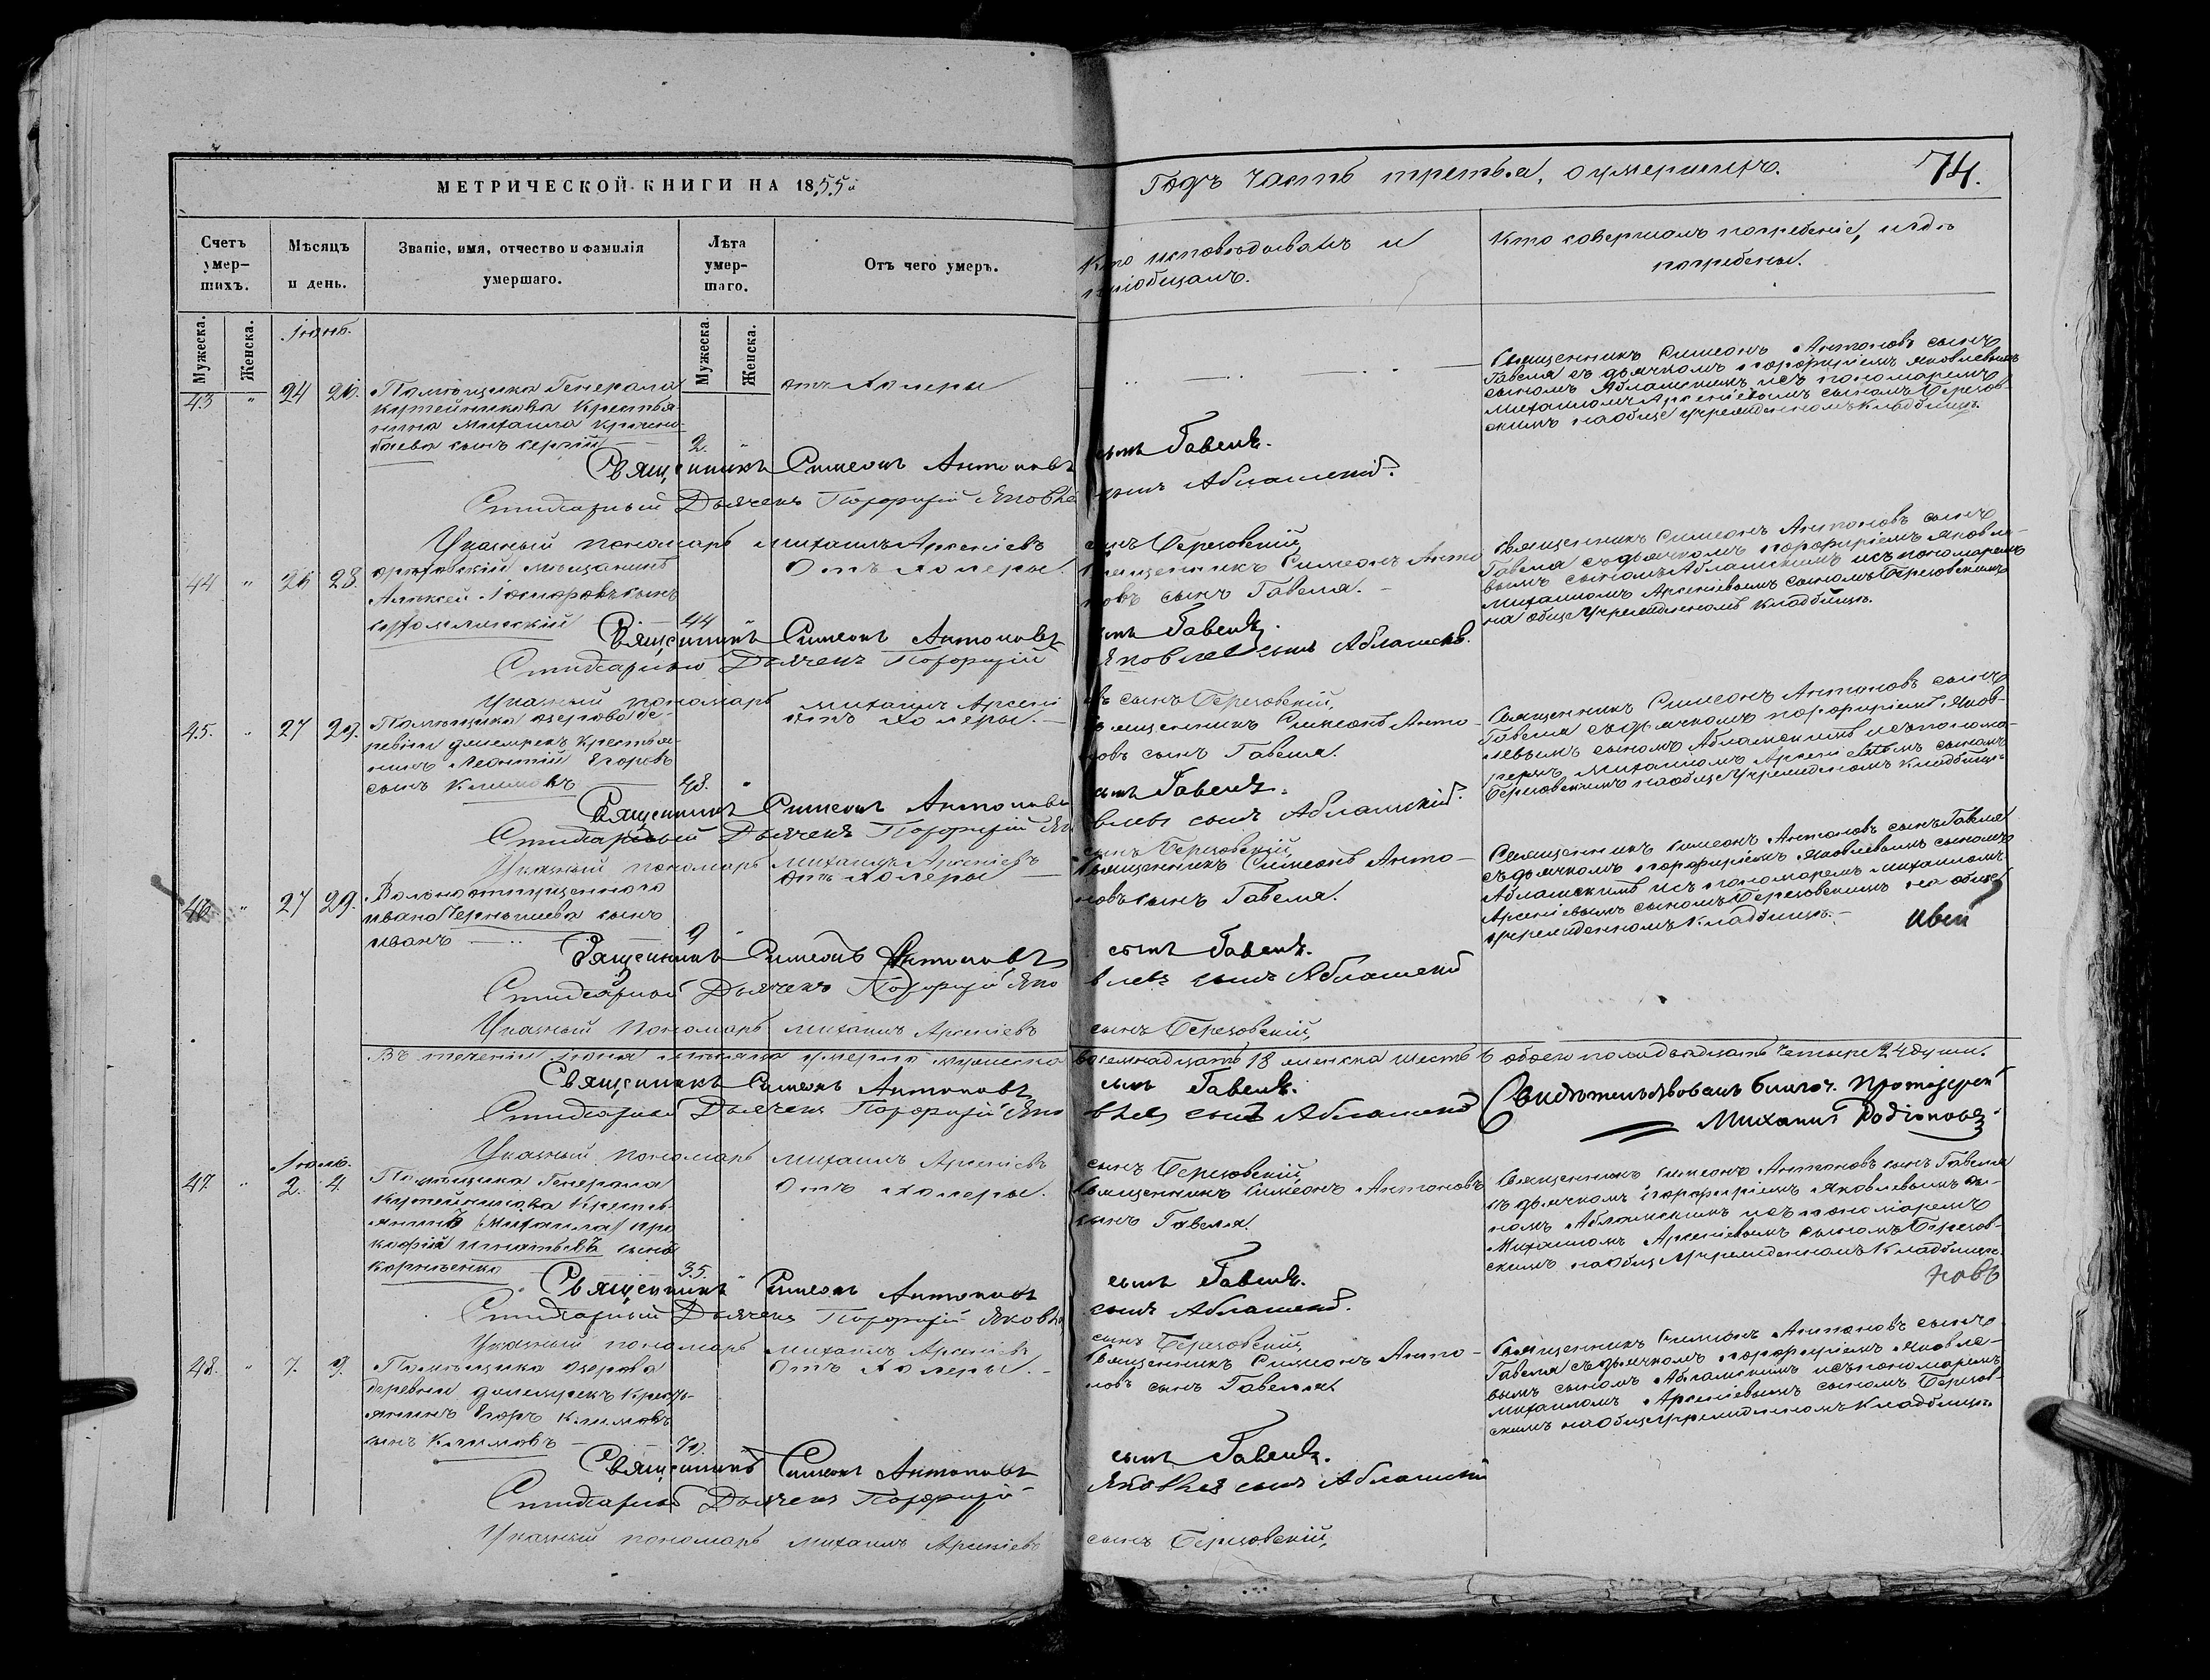 МЕТРИЧЕСКОЙ КНИГИ НА 1855й
Годъ часть третья, о умершихъ.
74.
Счетъ умер-
шихъ.
Мѣсяцъ
и день.
Званіе, имя, отчество и фамилія
умершаго.
Лѣта
умер-
шаго.
Отъ чего умеръ.
Кто исповѣдывалъ и
пріобщалъ.
Кто совершалъ погребеніе, и гдѣ
погребены.
Мужеска.
Женска.
Мужеска.
Женска.
Іюнь.
43 " 24 26.
Помѣщика Генерала
Кутейникова Крестья-
нина Михаила
сынъ Сергій
2. "
отъ холеры
Священникъ Симеонъ Антоновъ сынъ
Гавела съ дьячкомъ Порфиріемъ Яковлевымъ
сыномъ Абламскимъ и съ пономаремъ
Михаиломъ Арсеніевымъ сыномъ Березов-
скимъ на общеучрежденномъ кладбищѣ.
Священникъ Симеонъ Антоновъ сынъ Гавела.
Стихарный Дьячекъ Порфирій Яковлевъ сынъ Абламскій.
Указный пономарь Михаилъ Арсеніевъ сынъ Березовскій,
44 " 26 28.
мѣщанинъ
Алексей сынъ
44
Отъ холеры.
Священникъ Симеонъ Анто-
новъ сынъ Гавела.
Священникъ Симеонъ Антоновъ сынъ
Гавела съ дьячкомъ Порфиріемъ Яковле-
вымъ сыномъ Абламскимъ и съ пономаремъ
Михаиломъ Арсеніевымъ сыномъ Березовскимъ
на общеучрежденномъ кладбищѣ.
Священникъ Симеонъ Антоновъ сынъ Гавела.
Стихарный Дьячекъ Порфирій Яковлевъ сынъ Абламскій.
Указный пономарь Михаилъ Арсеніевъ сынъ Березовскій,
45. " 27 29.
Помѣщика Озерова де-
ревни крестья-
нинъ Леонтій Егоровъ
сынъ Климовъ
48. "
отъ холеры.
Священникъ Симеонъ Анто-
новъ сынъ Гавела.
Священникъ Симеонъ Антоновъ сынъ
Гавела съ дьячкомъ Порфиріемъ Яков-
левымъ сыномъ Абламскимъ и съ понома-
ремъ Михаиломъ Арсеніевымъ сыномъ
Березовскимъ на общеучрежденномъ кладбищѣ.
Священникъ Симеонъ Антоновъ сынъ Гавела.
Стихарный Дьячекъ Порфирій Яковлевъ сынъ Абламскій.
Указный пономарь Михаилъ Арсеніевъ сынъ Березовскій,
46 " 27 29.
Вольноотпущеннаго
Ивана Чернышева сынъ
Иванъ
9 "
отъ холеры
Священникъ Симеонъ Анто-
новъ сынъ Гавела.
Священникъ Симеонъ Антоновъ сынъ Гавела
съ дьячкомъ Порфиріемъ Яковлевымъ сыномъ
Абламскимъ и съ пономаремъ Михаиломъ
Арсеніевымъ сыномъ Березовскимъ на обще
учрежденномъ кладбищѣ.
Священникъ Симеонъ Антоновъ сынъ Гавела.
Стихарный Дьячекъ Порфирій Яковлевъ сынъ Абламскій
Указный пономарь Михаилъ Арсеніевъ сынъ Березовскій,
Въ теченіи Іюня мѣсяца умерло мужеска восемнадцать 18 женска шесть 6 обоего пола двадцать четыре 24 души.
Священникъ Симеонъ Антоновъ сынъ Гавела.
Стихарный Дьячекъ Порфирій Яковлевъ сынъ Абламскій
Указный пономарь Михаилъ Арсеніевъ сынъ Березовскій,
Свидѣтельствовалъ благоч. Протоіерей
Михаилъ Родіоновъ.
Іюль.
47 " 2. 4.
Помѣщика Генерала
Кутейникова Кресть-
янинъ (Михаила) Про
кофій Игнатьевъ сынъ
Корніенко
35. "
Отъ холеры.
Священникъ Симеонъ Антоновъ
сынъ Гавела.
Священникъ Симеонъ Антоновъ сынъ Гавела
съ дьячкомъ Порфиріемъ Яковлевымъ сы-
номъ Абламскимъ и съ пономаремъ
Михаиломъ Арсеніевымъ сыномъ Березов-
скимъ на общеучрежденномъ кладбищѣ.
Священникъ Симеонъ Антоновъ сынъ Гавела.
Стихарный Дьячекъ Порфирій Яковлевъ сынъ Абламскій.
Указный пономарь Михаилъ Арсеніевъ сынъ Березовскій,
48. " 7. 9.
Помѣщика Озерова
деревни кресть-
янинъ Егоръ Климовъ
сынъ Климовъ
70. "
Отъ холеры.
Священникъ Симеонъ Анто-
новъ сынъ Гавела.
Священникъ Симеонъ Антоновъ сынъ
Гавела съ дьячкомъ Порфиріемъ Яковле-
вымъ сыномъ Абламскимъ и съ пономаремъ
Михаиломъ Арсеніевымъ сыномъ Березов-
скимъ на общеучрежденномъ кладбищѣ.
Священникъ Симеонъ Антоновъ сынъ Гавела.
Стихарный Дьячекъ Порфирій Яковлевъ сынъ Абламскій
Указный пономарь Михаилъ Арсеніевъ сынъ Березовскій,